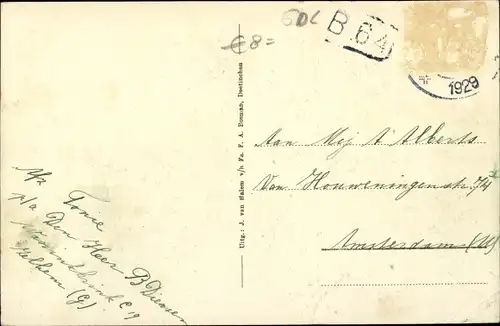 € 8=
GDL
B 64
1929
Uitg.: J. van Halem v/h Fa. F. A. Bosman, Doetinchem
Aan Mej A Alberts
Van Houweningenstr. 74 I
Amsterdam (W)
Afz Tonie
p/a Den Heer B
C 19
(G)